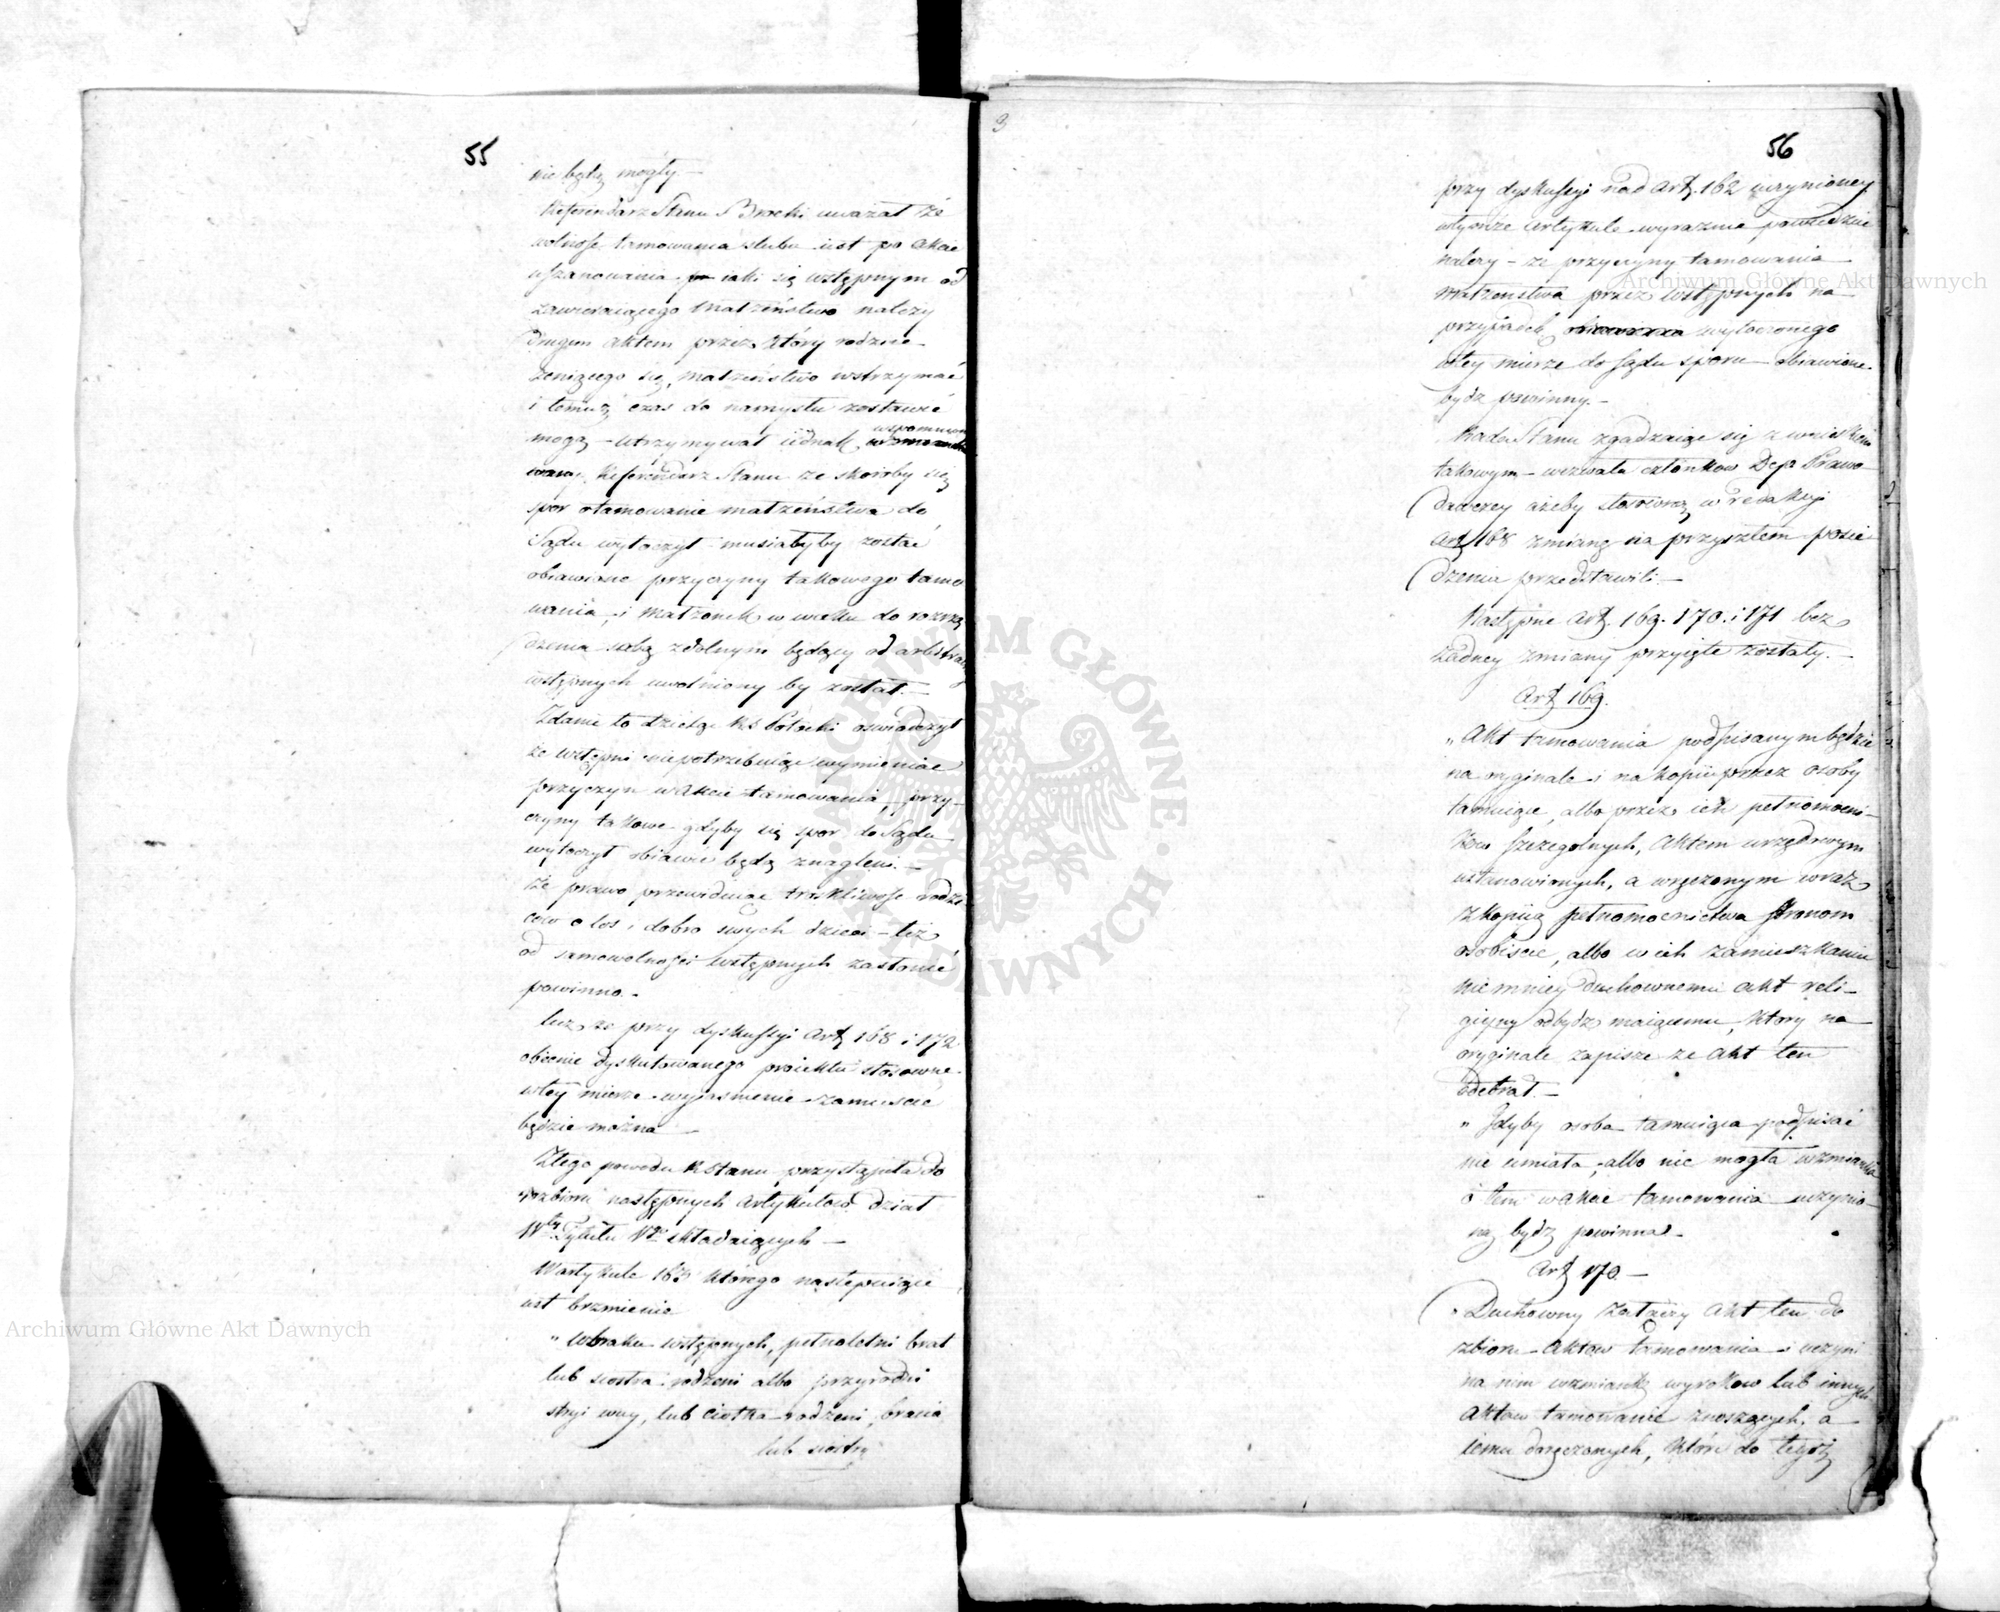 55
nie będą mogły. —
Referendarz Stanu Brocki uważał że
wolność tamowania ślubu iest po akcie
uszanowania iaki się wstępnym od
zawieraiącego małżeństwo należy
drugim aktem przez który rodzice
żeniącego się, małżeństwo wstrzymać
i temuż czas do namysłu zostawić
mogą — utrzymywał iednak
Referendarz Stanu że skoroby się
spór o tamowanie małżeństwa do
Sądu wytoczył — musiałyby zostać
obiawione przyczyny takowego tamo
wania, i małżonek w wieku do rozrzą
dzenia sobą zdolnym będący od
wstępnych uwolniony by został. —
Zdanie to dzieląc Potocki oświadczył
że wstępni niepotrzebuiąc wymieniać
przyczyn w akcie tamowania, przy-
czyny takowe gdyby się spór do Sądu
wytoczył obiawić będą znagleni. —
Że prawo przewiduiąc troskliwość rodzi
ców o los i dobro swych dzieci — też
od samowolności wstępnych zasłonić
powinno. —
też przy dyskussyi Art 168 i 172
obecnie dyskutowanego proiektu stosowne
w tey mierze wyiaśnienie zamieścić
będzie można —
Z tego powodu R Stanu przystąpiła do
rozbioru następnych artykułów dział
Tytułu składaiących —
W artykule którego następuiące
iest brzmienie
„ W braku wstępnych, pełnoletni brat
lub siostra rodzeni albo przyrodni
stryi wuy, lub ciotka rodzeni, bracia
lub siostry
56
przy dyskussyi nad Art. 162 uczynioney
w tymże artykule wyraźnie powiedzieć
należy — że przyczyny tamowania
małżeństwa przez wstępnych na
przypadek wytoczonego
w tey mierze do Sądu sporu — obiawione
bydź powinny. —
Rada Stanu zgadzaiąc się z wnioskiem
takowym — wezwała członków Dep. Prawo-
dawczey ażeby stosowną w redakcyi
Art 168 zmianę na przyszłem posie
dzeniu przedstawili. —
Następne Art. 169. 170. i 171 bez
żadney zmiany przyięte zostały. —
Art 169.
„ Akt tamowania podpisanym będzie
na oryginale i na kopii przez osoby
tamuiące, albo przez ich pełnomocni-
ków szczególnych, Aktem urzędowym
ustanowionych, a wręczonym wraz
z kopią pełnomocnictwa stronom
osobiście, albo w ich zamieszkaniu
nie mniey duchownemu akt reli-
giyny odbydź maiącemu, który na
oryginale zapisze że akt ten
odebrał. —
„ Gdyby osoba tamuiąca podpisać
nie umiała, albo nie mogła wzmianka
o tem w akcie tamowania uczynio-
ną bydź powinna. —
Art 170. —
„ Duchowny załączy akt ten do
zbioru Aktów tamowania i uczyni
na nim wzmiankę wyroków lub innych
aktów tamowanie znoszących, a
iemu doręczonych, które do tegoż
Archiwum Główne Akt Dawnych
Archiwum Główne Akt Dawnych
ARCHIWUM GŁÓWNE AKT DAWNYCH